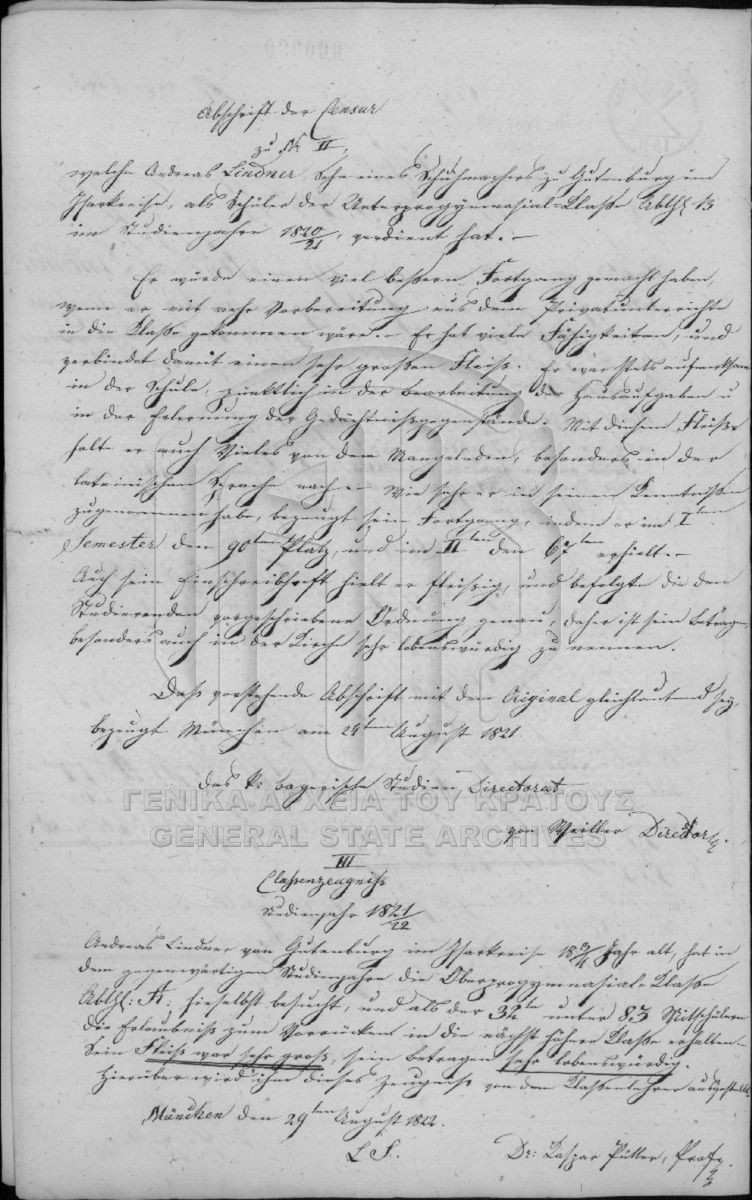 Abschrift der Censur
zu Nr. II.
welche Andreas Lindner Sohn eines Schuhmachers zu Gutenburg im
Isarkreise, als Schüler der Unterprogymnasial-Klasse Abthl: B
im Studienjahre 1820/21, verdient hat. –
Er würde einen viel bessern Fortgang gemacht haben,
wenn er mit mehr Vorbereitung aus dem Privatunterrichte
in die Klasse gekommen wäre. – Er hat viele Fähigkeiten, und
verbindet damit einen sehr großen Fleiß. Er war stets aufmerksam
in der Schule, pünktlich in der Bearbeitung der Hausaufgaben u
in der Erlernung der Gedächtnißgegenstände. Mit diesem Fleiße
holte er auch Vieles von dem Mangelnden, besonders in der
lateinischen Sprache nach. – Wie sehr er in seinen Kenntnißen
zugenommen habe, bezeugt sein Fortgang, indem er im I ten
Semester den 90ten Platz, und im II ten den 67 ten erhielt. –
Auch sein Einschreibheft hielt er fleißig, und befolgte die den
Studierenden vorgeschriebene Ordnung genau, daher ist sein Betragen,
besonders auch in der Kirche sehr lobenswürdig zu nennen.
Daß vorstehende Abschrift mit dem Original gleichlautend sey,
bezeugt München am 24ten August 1821.
Das k: bayerische Studien Directorat
ΓΕΝΙΚΑ ΑΡΧΕΙΑ ΤΟΥ ΚΡΑΤΟΥΣ
GENERAL STATE ARCHIVES
von Weiller Director
III
Classenzeugniß
Studienjahr 1821/22
Andreas Lindner von Gutenburg im Isarkreise 18 3/4 Jahr alt, hat in
dem gegenwärtigen Studienjahre die Oberprogymnasial-Klasse
Abthl: A: hieselbst besucht, und als der 32te unter 83 Mitschülern
die Erlaubniß zum Vorrücken in die nächst höhere Klasse erhalten. –
Sein Fleiß war sehr groß, sein Betragen sehr lobenswürdig.
Hierüber wird ihm dieses Zeugniß von dem Klassenlehrer ausgestellt.
München den 29ten August 1822.
L S.
Dr: Kaspar Pütter, Prof.